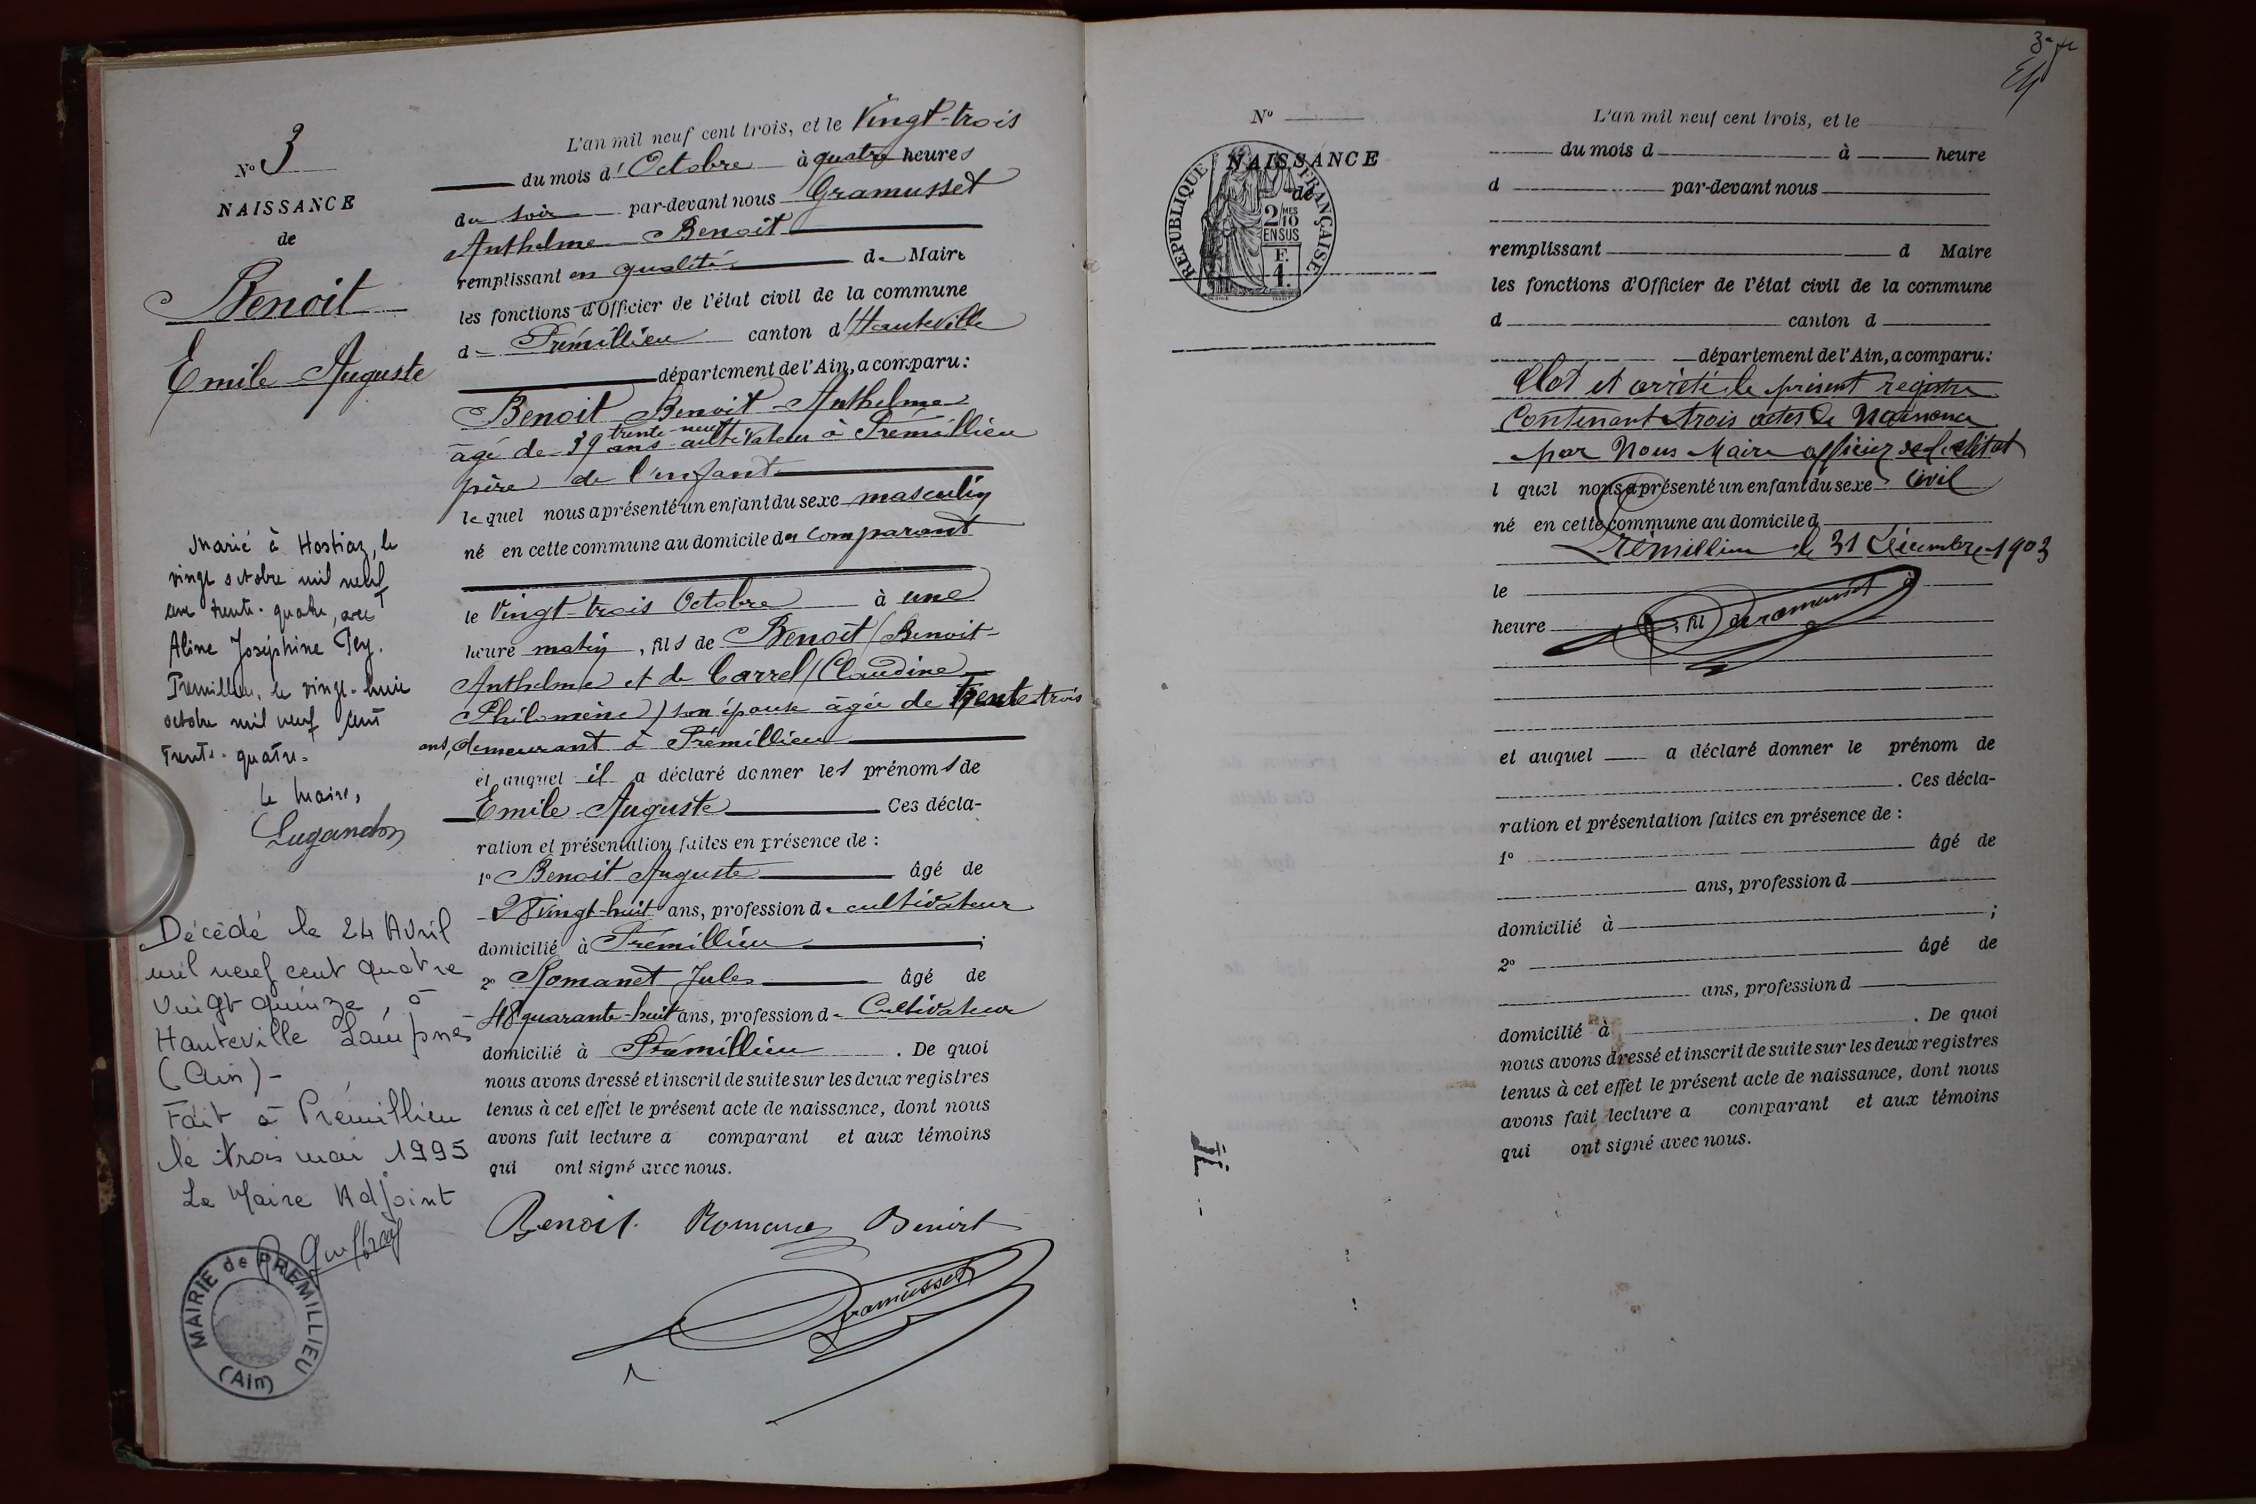 N° 3
NAISSANCE
de
Benoit
Emile Auguste
Marié à Hostiaz, le
vingt octobre mil neuf
cent trente-quatre, avec
Aline Joséphine Pey.
Prémillieu, le vingt-huit
octobre mil neuf cent
trente-quatre.
Le Maire,
Lugandon
Décédé le 24 Avril
mil neuf cent quatre
vingt quinze, à
Hauteville Lompnès
(Ain) -
Fait à Prémillieu
le trois mai 1995
Le Maire Adjoint
MAIRIE de PREMILLIEU
(Ain)
L'an mil neuf cent trois, et le Vingt-trois
du mois d'Octobre à quatre heures
du soir par-devant nous Gramusset
Anthelme Benoit
remplissant en qualité de Maire
les fonctions d'Officier de l'état civil de la commune
de Prémillieu canton d'Hauteville
département de l'Ain, a comparu:
Benoit Benoit-Anthelme
trente-neuf
âgé de 39 ans cultivateur à Prémillieu
père de l'enfant
lequel nous a présenté un enfant du sexe masculin
né en cette commune au domicile du comparant
le Vingt-trois Octobre à une
heure matin, fils de Benoit (Benoit-
Anthelme) et de Carrel (Claudine
Philomène) son épouse âgée de trente trois
ans, demeurant à Prémillieu
et auquel il a déclaré donner les prénoms de
Emile Auguste Ces décla-
ration et présentation faites en présence de :
1° Benoit Auguste âgé de
28 Vingt-huit ans, profession de cultivateur
domicilié à Prémillieu ;
2° Romanet Jules âgé de
48 quarante-huit ans, profession de Cultivateur
domicilié à Prémillieu . De quoi
nous avons dressé et inscrit de suite sur les deux registres
tenus à cet effet le présent acte de naissance, dont nous
avons fait lecture a comparant et aux témoins
qui ont signé avec nous.
Benoit. Romanet Benoit
Gramusset
N°
NAISSANCE
de
RÉPUBLIQUE FRANÇAISE
2 MES
10
EN SUS
F.
1.
L'an mil neuf cent trois, et le
du mois d à heure
d par-devant nous
remplissant d Maire
les fonctions d'Officier de l'état civil de la commune
d canton d
département de l'Ain, a comparu:
Clos et arrêté le présent registre
Contenant trois actes de Naissance
par Nous Maire officier de l'état
l quel nous a présenté un enfant du sexe Civil
né en cette commune au domicile d
Prémillieu le 31 Décembre 1903
le à
heure , fil de
Gramusset
et auquel a déclaré donner le prénom de
. Ces décla-
ration et présentation faites en présence de :
1° âgé de
ans, profession d
domicilié à ;
2° âgé de
ans, profession d
domicilié à . De quoi
nous avons dressé et inscrit de suite sur les deux registres
tenus à cet effet le présent acte de naissance, dont nous
avons fait lecture a comparant et aux témoins
qui ont signé avec nous.